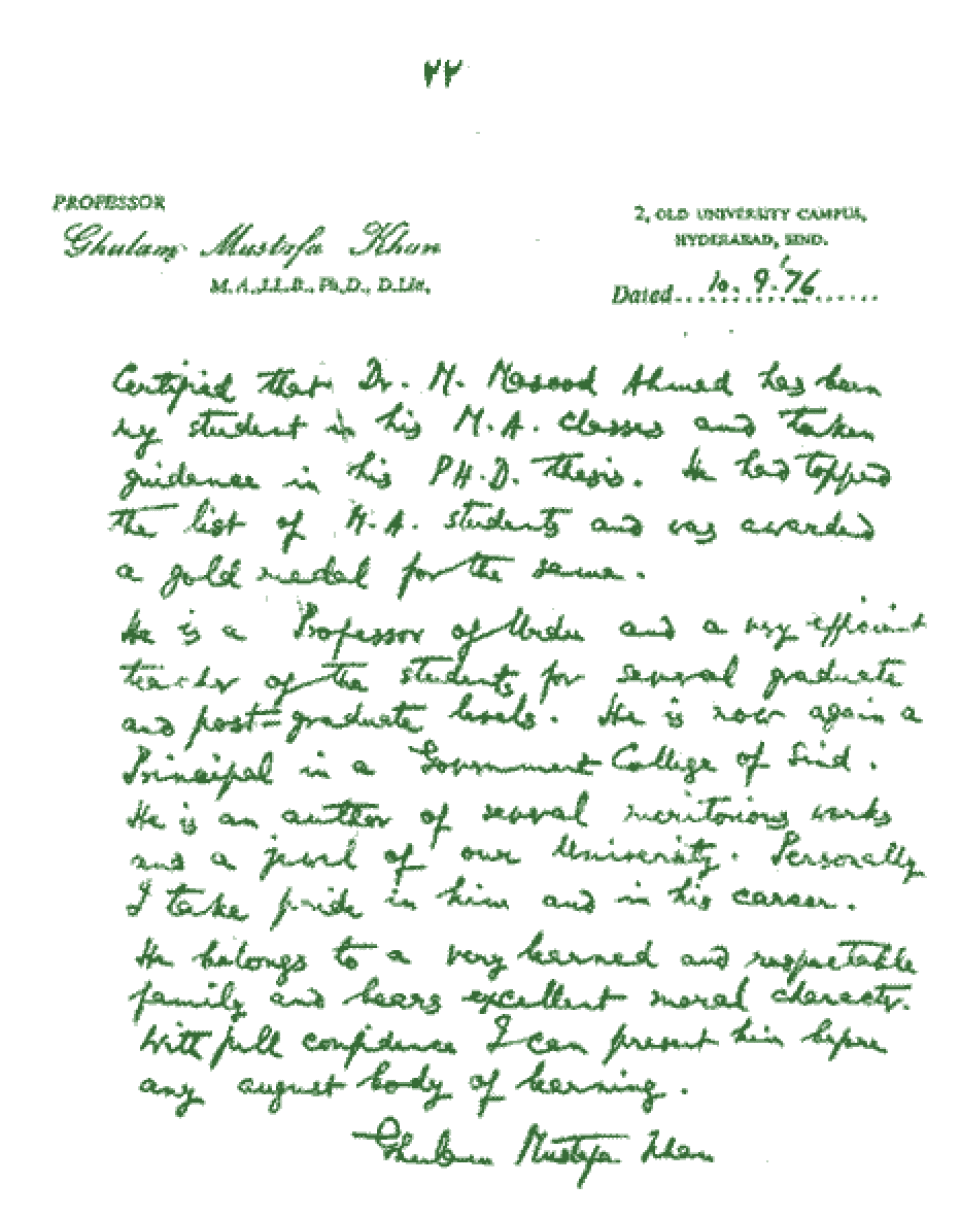 ۲۲
PROFESSOR
Ghulam Mustafa Khan
M.A., LL.B., Ph.D., D.Litt.
2, OLD UNIVERSITY CAMPUS,
HYDERABAD, SIND.
Dated 10.9.'76
Certified that Dr. M. Masood Ahmed has been
my student in his M.A. classes and taken
guidance in his PH.D. thesis. He had topped
the list of M.A. students and was awarded
a gold medal for the same.
He is a Professor of Urdu and a very efficient
teacher of the students for several graduate
and post-graduate levels. He is now again a
Principal in a Government College of Sind.
He is an author of several meritorious works
and a jewel of our University. Personally
I take pride in him and in his career.
He belongs to a very learned and respectable
family and bears excellent moral character.
With full confidence I can present him before
any august body of learning.
Ghulam Mustafa Khan